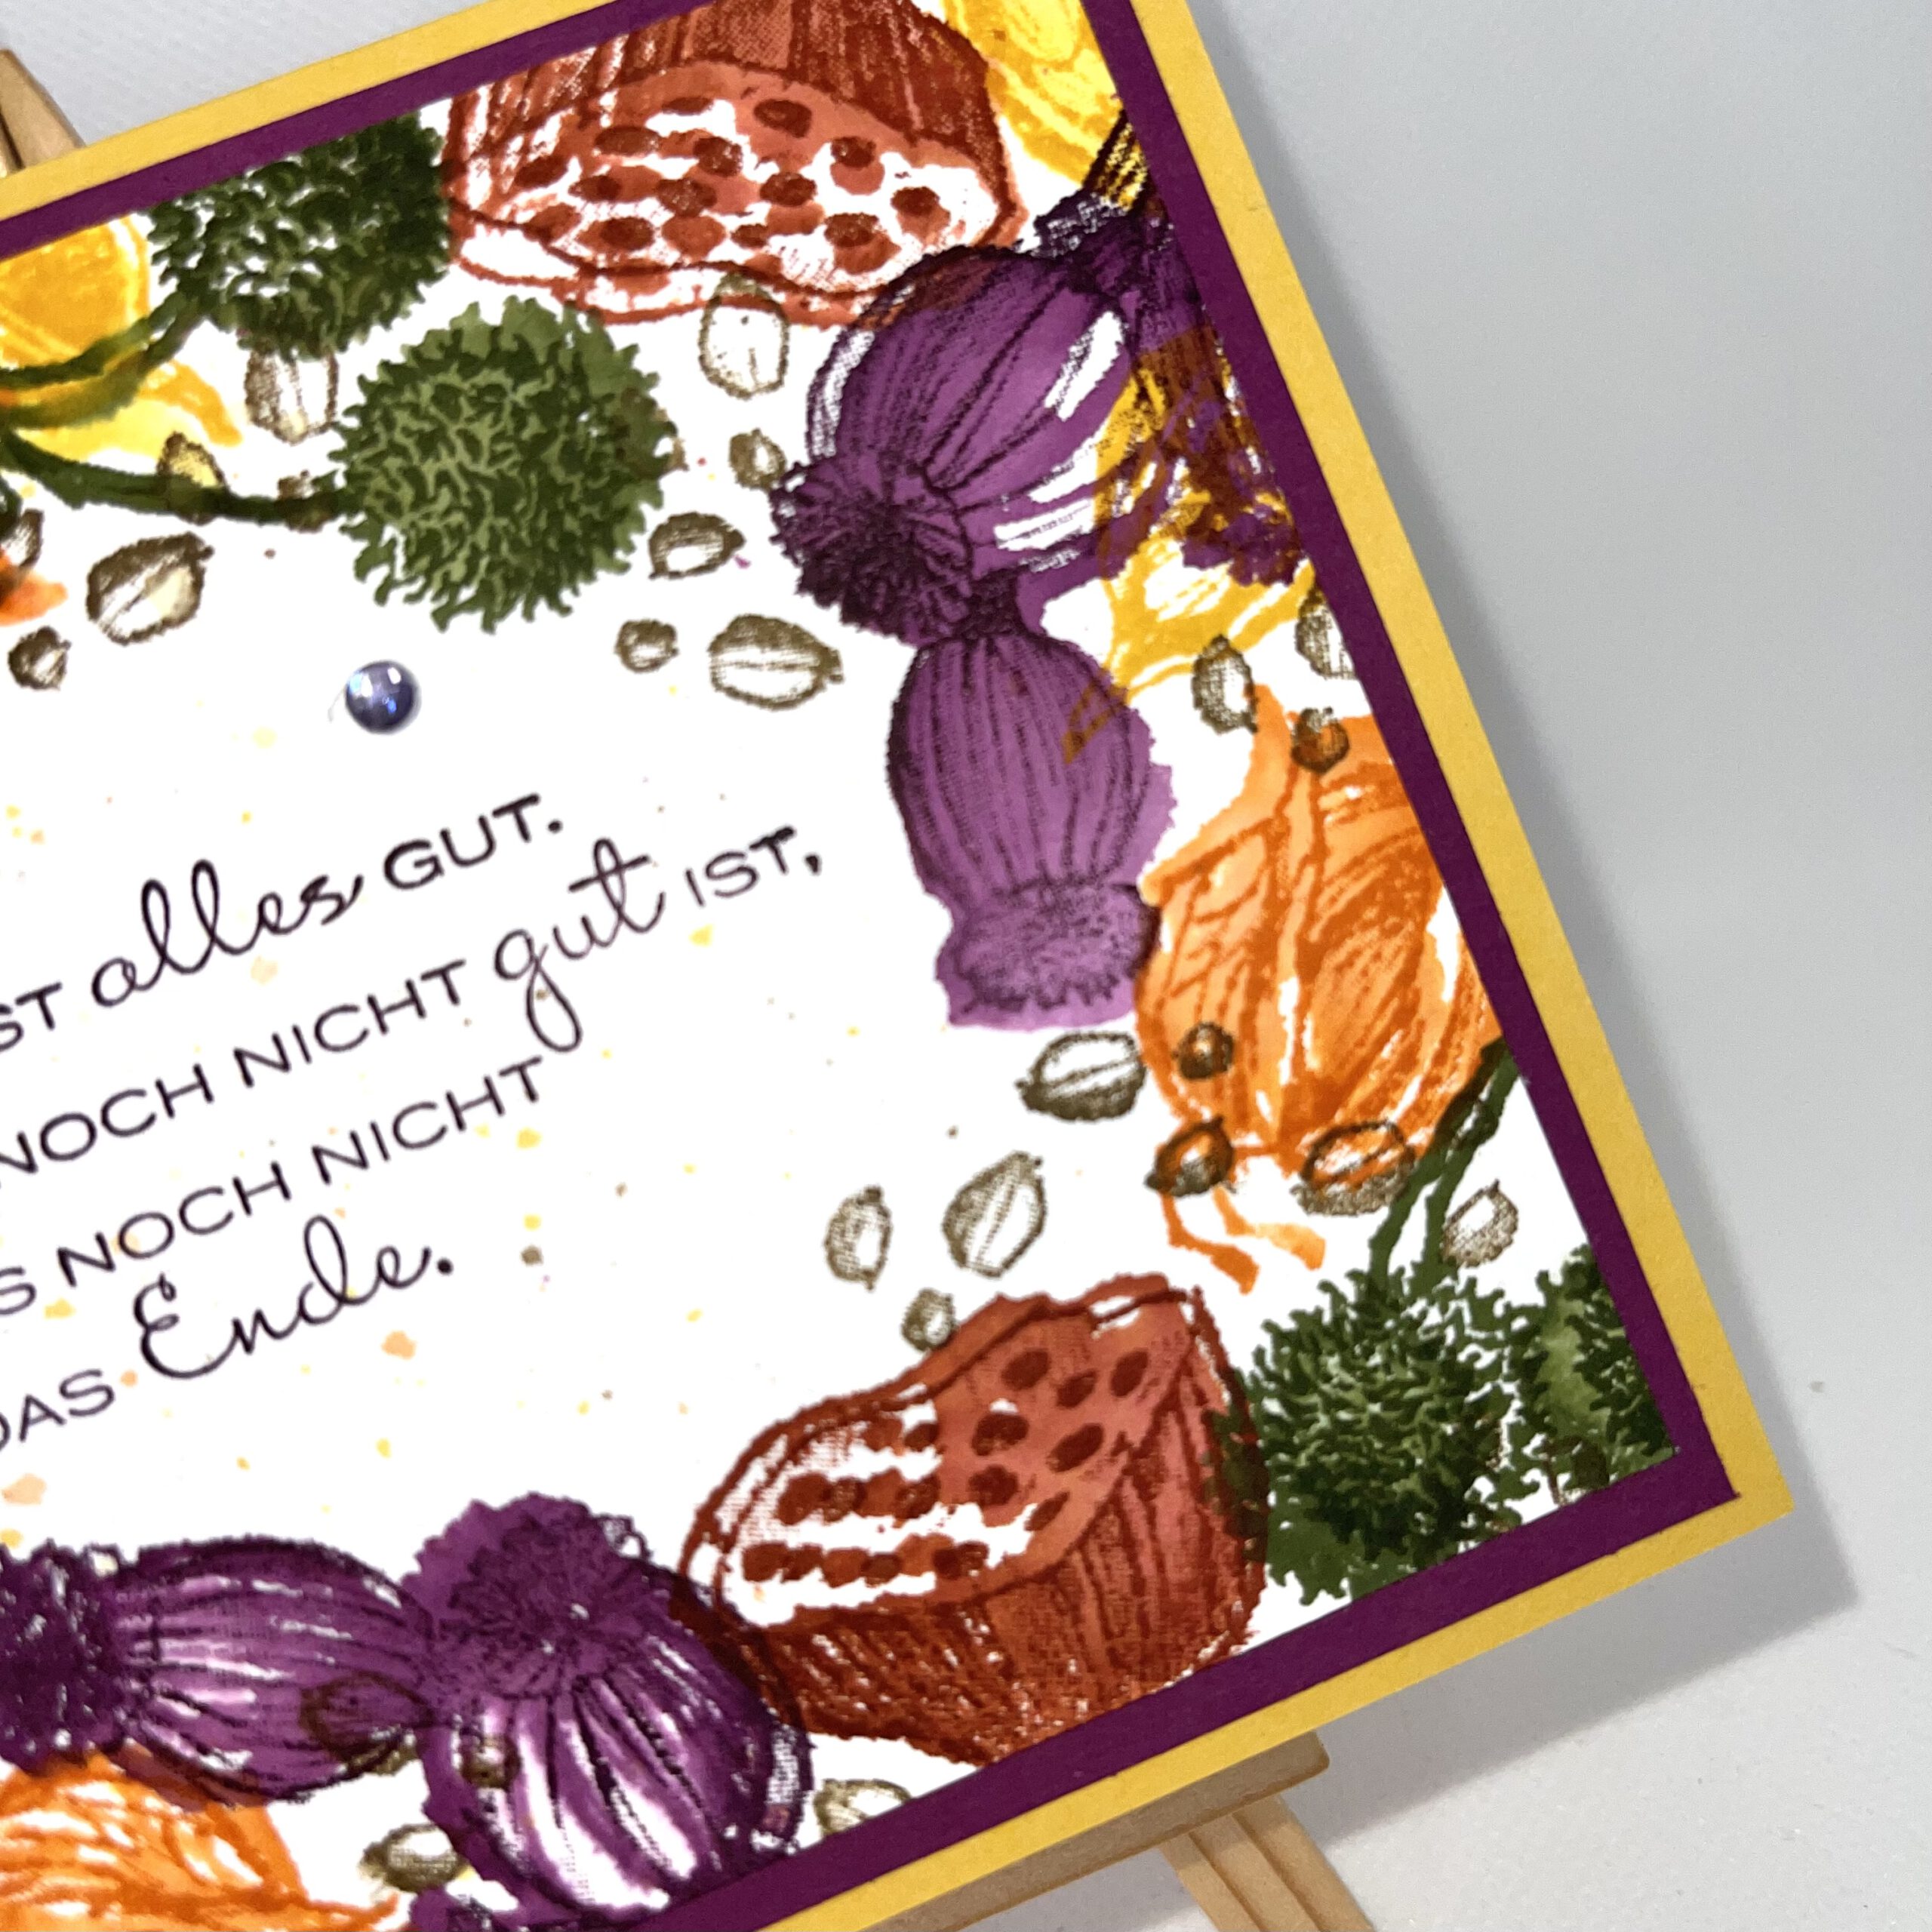 ST alles GUT.
NOCH NICHT gut IST,
S NOCH NICHT
DAS Ende.